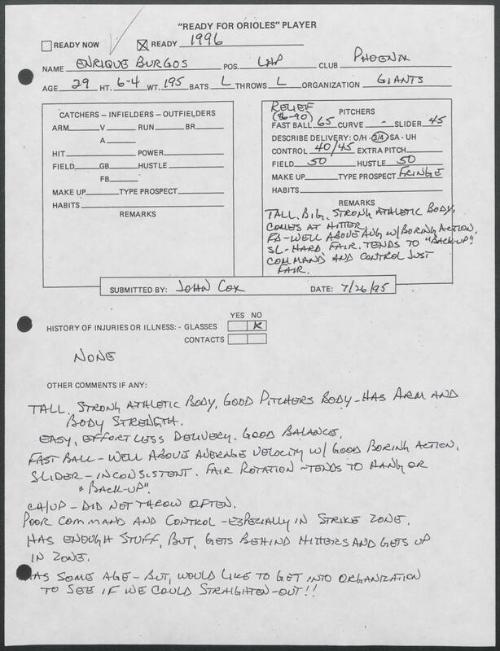 "READY FOR ORIOLES" PLAYER
READY NOW READY 1996
NAME ENRIQUE BURGOS POS. LHP CLUB PHOENIX
AGE 29 HT. 6-4 WT. 195 BATS L THROWS L ORGANIZATION GIANTS
CATCHERS - INFIELDERS - OUTFIELDERS
ARM V RUN BR
A
HIT POWER
FIELD GB HUSTLE
FB
MAKE UP TYPE PROSPECT
HABITS
REMARKS
RELIEF PITCHERS
(86-90)
FAST BALL 65 CURVE - SLIDER 45
DESCRIBE DELIVERY: O/H 3/4 SA - UH
CONTROL 40/45 EXTRA PITCH
FIELD 50 HUSTLE 50
MAKE UP TYPE PROSPECT FRINGE
HABITS
REMARKS
TALL, BIG, STRONG ATHLETIC BODY,
COMES AT HITTER.
FB-WELL ABOVE AVG W/ BORING ACTION.
SL-HARD, FAIR. TENDS TO "BACK-UP"
COMMAND AND CONTROL JUST
FAIR.
SUBMITTED BY: JOHN COX DATE: 7/26/95
YES NO
HISTORY OF INJURIES OR ILLNESS: - GLASSES X
CONTACTS
NONE
OTHER COMMENTS IF ANY:
TALL, STRONG ATHLETIC BODY, GOOD PITCHERS BODY-HAS ARM AND
BODY STRENGTH.
EASY, EFFORTLESS DELIVERY. GOOD BALANCE.
FAST BALL - WELL ABOVE AVERAGE VELOCITY W/ GOOD BORING ACTION.
SLIDER - INCONSISTENT. FAIR ROTATION - TENDS TO HANG OR
"BACK-UP".
CH/UP - DID NOT THROW OFTEN.
POOR COMMAND AND CONTROL - ESPECIALLY IN STRIKE ZONE.
HAS ENOUGH STUFF, BUT, GETS BEHIND HITTERS AND GETS UP
IN ZONE.
HAS SOME AGE - BUT, WOULD LIKE TO GET INTO ORGANIZATION
TO SEE IF WE COULD STRAIGHTEN-OUT!!